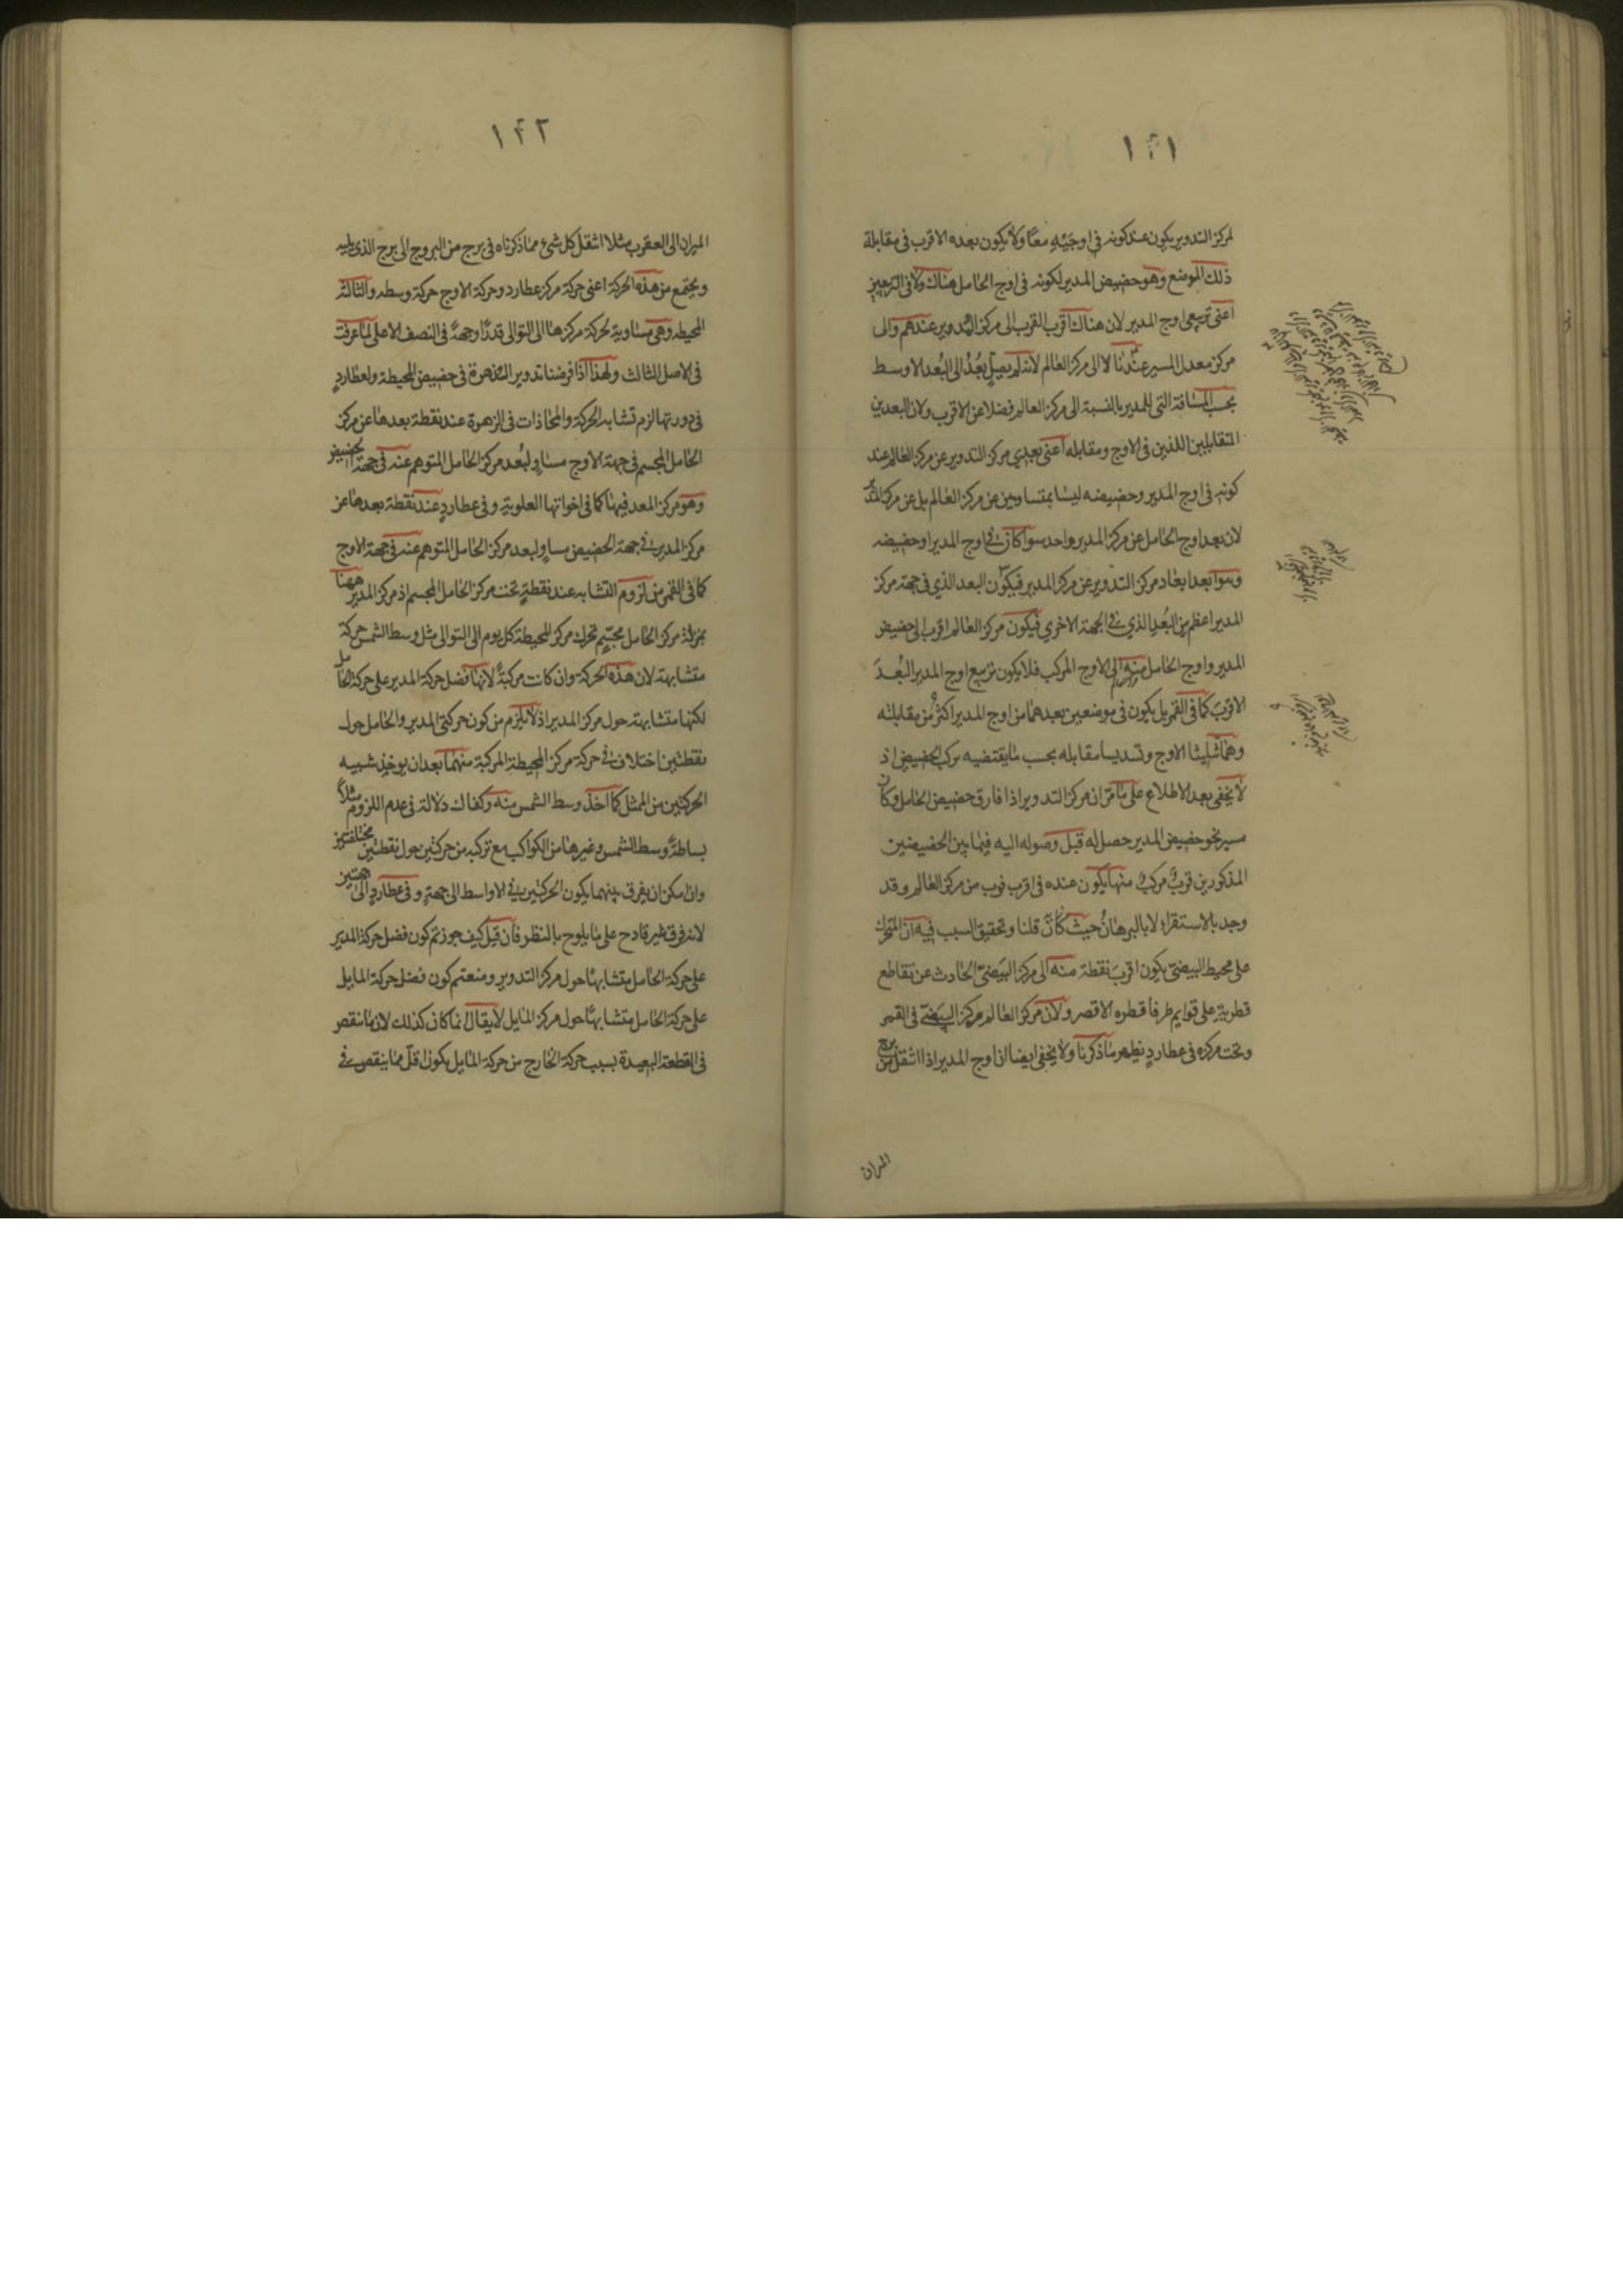 ١٤١
لمركز التدوير يكون عند كونه في اوجَيْهِ معًا ولا يكون بعده الاقرب في مقابلة
ذلك الموضع وهو حضيض المدير لكونه في اوج الحامل هناك ولا في التربيعين
اعنى تربيعى اوج المدير لان هناك اقرب القرب الى مركز المدير عندهم والى
مركز معدل المسير عندنا لا الى مركز العالم لانه لم يصل بَعْدُ الى البُعد الاوسط
بحسب المسافة التى للمدير بالنسبة الى مركز العالم فضلا عن الاقرب ولان البعدين
المتقابلين اللذين في الاوج ومقابله اعنى بعدي مركز التدوير عن مركز العالم عند
كونه في اوج المدير وحضيضه ليسا بمتساويين عن مركز العالم بل عن مركز المدير
لان بعد اوج الحامل عن مركز المدير واحد سوا كان في اوج المدير او حضيضه
وهو ابعد ابعاد مركز التدوير عن مركز المدير فيكون البعد الذي في جهة مركز
المدير اعظم من البُعدِ الذي في الجهة الاخري فيكون مركز العالم اقرب الى حضيض
المدير واوج الحامل منه الى الاوج المركب فلا يكون تربيع اوج المدير البُعدَ
الاقربَ كما في القمر بل يكون في موضعين بعدهما من اوج المدير اكثرُ من مقابلته
وهما ثليثا الاوج وتسديسا مقابله بحسب ما يقتضيه مركب الحضيض اذ
لا يخفى بعد الاطلاع على ما مر ان مركز التدوير اذا فارق حضيض الحامل وكان
مسير نحو حضيض المدير حصل له قبل وصوله اليه فيما بين الحضيضين
المذكورين قربٌ مركبٌ منهما يكون عنده في اقرب قرب من مركز العالم وقد
وجد بالاستقراء لا بالبرهان حيث كان قلنا وتحقيق السبب فيه ان المتحرك
على محيط البيضىّ يكون اقربَ نقطة منه الى مركز البيضىّ الحادث عن تقاطع
قطريه على قوايم طرفا قطره الاقصر ولان مركز العالم مركز البيضىّ في القمر
وتحت مركزه في عطارد يظهر ما ذكرنا ولا يخفى ايضا ان اوج المدير اذا انتقل من برج
الميزان
١٤٢
الميزان الى العقرب مثلا انتقل كل شئ مما ذكرناه في برج من البروج الى برج الذي يليه
ويجتمع من هذه الحركة اعنى حركة مركز عطارد وحركة الاوج حركة وسطه والثالثة
المحيطه وهى مساوية لحركة مركزها الى التوالى قدرًا وجهةً في النصف الاعلى لما عرفت
في الاصل الثالث ولهذا اذا فرضنا تدوير الزهرة في حضيض المحيطة ولعطاردٍ
في دورتها لزم تشابه الحركة والمحاذات في الزهرة عند نقطة بعدها عن مركز
الحامل المجسم في جهة الاوج مساوٍ لبُعد مركز الحامل المتوهم عنه في جهة الحضيض
وهو مركز المعدل فيها كما في اخواتها العلوية وفي عطاردٍ عند نقطة بعدها عن
مركز المدير في جهة الحضيض مساوٍ لبعد مركز الحامل المتوهم عنه في جهة الاوج
كما في القمر من لزوم التشابه عند نقطةٍ تحت مركز الحامل المجسم اذ مركز المدير ههنا
بمنزلة مركز الحامل مجسّم تحرك مركز المحيطة كل يوم الى التوالى مثل وسط الشمس حركة
متشابهة لان هذه الحركة وان كانت مركبةً لانها فضل حركة المدير على حركة الحامل
لكنها متشابهة حول مركز المدير اذ لا يلزم من كون حركتى المدير والحامل حول
نقطتين اختلاف في حركة مركز المحيطة المركبة منهما بعد ان يوخذ شبيه
الحركتين من الممثل كما اخذ وسط الشمس منه وكفاك دلالة في عدم اللزوم مثلاً
بساطةُ وسط الشمس وغيرها من الكواكب مع تركبه من حركتين حول نقطتين مختلفتين
وان امكن ان يفرق بينهما بكون الحركتين في الاواسط الى جهةٍ وفي عطاردٍ الى جهتين
لانه فرق غير قادح على ما يلوح بالنظر فان قيل كيف جوزتم كون فضل حركة المدير
على حركة الحامل متشابهًا حول مركز التدوير ومنعتم كون فضل حركة المايل
على حركة الحامل متشابهًا حول مركز المايل لا يقال انما كان كذلك لان ما نقص
في القطعة البعيدة بسبب حركة الخارج من حركة المايل يكون اقلّ مما ينقص في